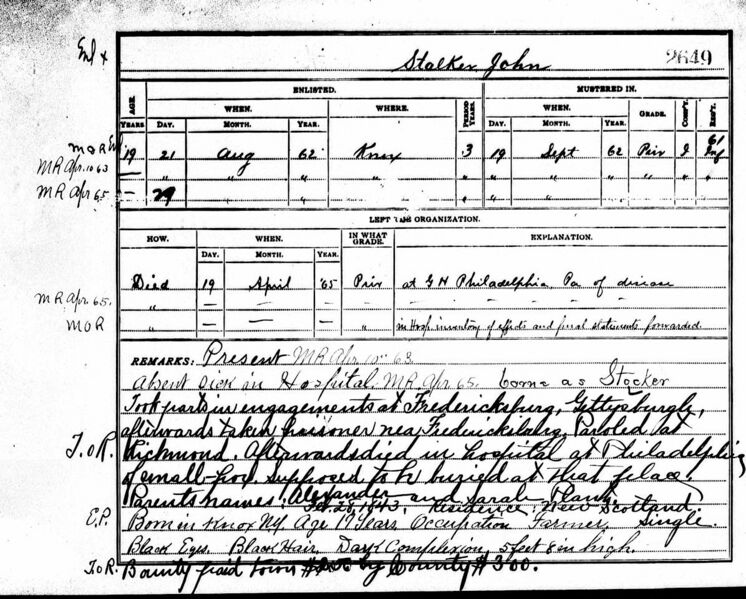 Enl x
Stalker John 2649
AGE. ENLISTED. PERIOD YEARS. MUSTERED IN.
WHEN. WHERE. WHEN. GRADE. COMP'Y. REG'T.
YEARS. DAY. MONTH. YEAR. DAY. MONTH. YEAR.
MOR Enl 19 21 Aug 62 Knox 3 19 Sept 62 Priv I 61 Inf
MR Apr. 10 63 — " " " " " " " " " " "
MR Apr 65 — 29 " " " " " "
LEFT THE ORGANIZATION.
HOW. WHEN. IN WHAT GRADE. EXPLANATION.
DAY. MONTH. YEAR.
Died 19 April 65 Priv at G H Philadelphia Pa of disease
MR Apr 65. " — — — " - - - - -
MOR " — — — " in Hosp. inventory of effects and final statements forwarded.
REMARKS: Present MR Apr 10" 63
Absent sick in Hospital MR Apr 65. borne as Stocker
Took parts in engagements at Fredericksburg, Gettysburgh,
afterwards taken prisoner near Fredericksburg. Paroled at
T.o.R. Richmond. Afterwards died in hospital at Philadelphia
of small-pox. Supposed to be buried at that place.
Parents names: Alexander and Sarah Plank
Feb. 28, 1843. Residence, New Scotland.
E.P. Born in Knox NY. Age 19 years Occupation Farmer. Single.
Black Eyes. Black Hair, Dark Complexion, 5 feet 8 in high.
T.o.R. Bounty paid town by County $300.